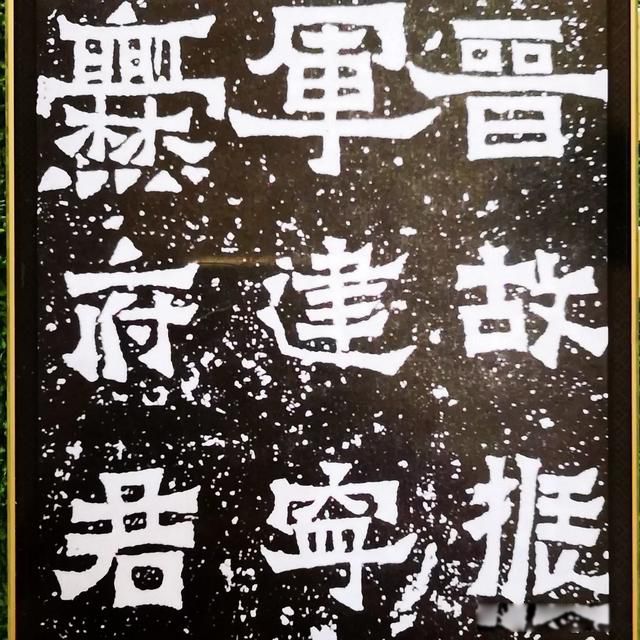 晉故振
軍建寧
爨府君